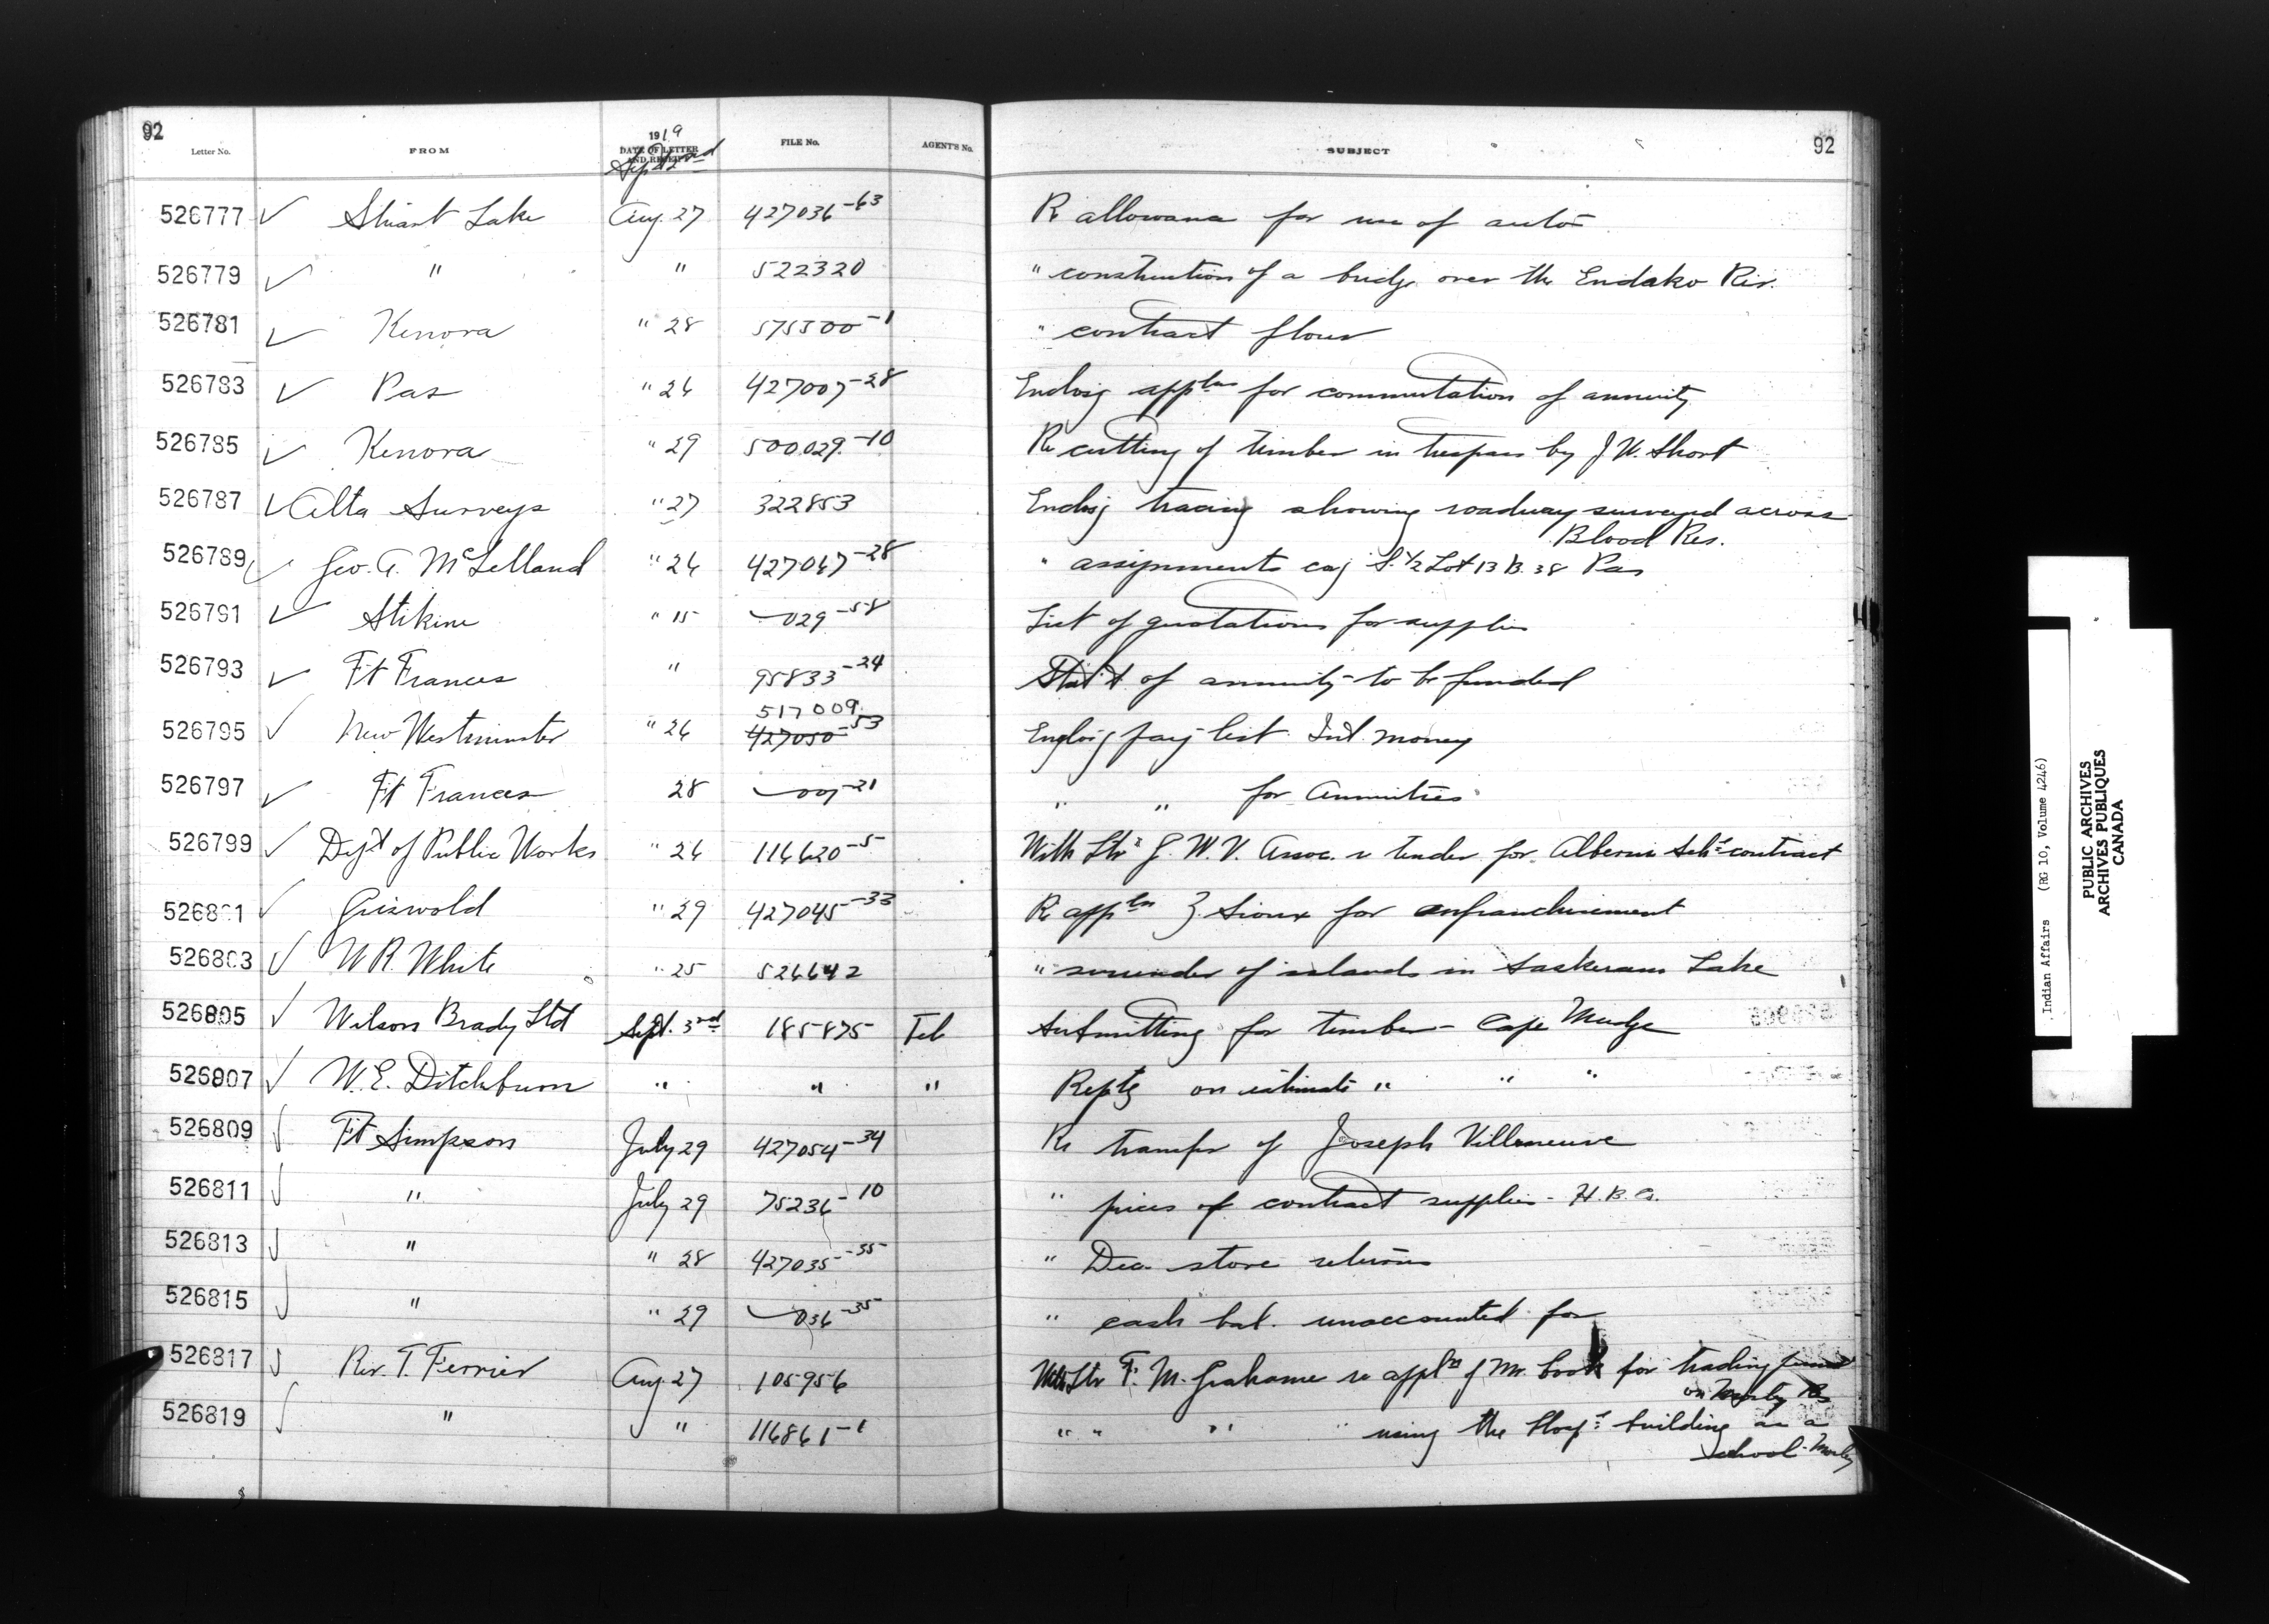 92
92
Letter No. FROM 1919 DATE OF LETTER AND RECEIPT FILE No. AGENT'S No. SUBJECT
Sept 2nd
526777 ✓ Stuart Lake Aug. 27 427036-63 Re allowance for use of auto
526779 ✓ " " 522320 " construction of a bridge over the Endako Riv.
526781 ✓ Kenora " 28 575500-1 " contract flour
526783 ✓ Pas " 26 427007-28 Enclosg appln for commutation of annuity
526785 ✓ Kenora " 29 500029-10 Re cutting of timber in trespass by J W. Short
526787 ✓ Alta Surveys " 27 322853 Enclosg tracing showing roadway surveyed across
Blood Res.
526789 ✓ Geo. A. McLelland " 26 427067-28 " assignments S. 1/2 Lot 13 B. 38 Pas
526791 ✓ Stikine " 15 029-58 List of quotations for supplies
526793 ✓ Ft Frances " 95833-24 Stat't of annuity to be funded
517009
526795 ✓ New Westminster " 26 427050-53 Enclosg pay list Int. money
526797 ✓ Ft Frances 28 007-21 " " for Annuities
526799 ✓ Dept of Public Works " 26 116620-5 With Ltr G. W. V. Assoc. re tender for Alberni Schl contract
526801 ✓ Griswold " 29 427045-33 Re appln Sioux for enfranchisement
526803 ✓ W R. White " 25 526642 " surrender of islands in Saskeram Lake
526805 ✓ Wilson Brady Ltd Sept. 3rd 185875 Tel Submitting for timber - Cape Mudge
526807 ✓ W. E. Ditchburn " " " Reptg on estimate " " "
526809 ✓ Ft Simpson July 29 427054-34 Re transfer of Joseph Villeneuve
526811 ✓ " July 29 75236-10 " prices of contract supplies - H. B. Co.
526813 ✓ " " 28 427035-35 " Dec. store returns
526815 ✓ " " 29 036-35 " cash bal. unaccounted for
526817 ✓ Rev. T. Ferrier Aug. 27 105956 With Ltr F. M. Grahame re appln of Mr. Cook for trading
on Morley Res
526819 ✓ " " 116861-1 " " " " using the Hospl building as a
school - Morley
Indian Affairs (RG 10, Volume 4246)
PUBLIC ARCHIVES
ARCHIVES PUBLIQUES
CANADA